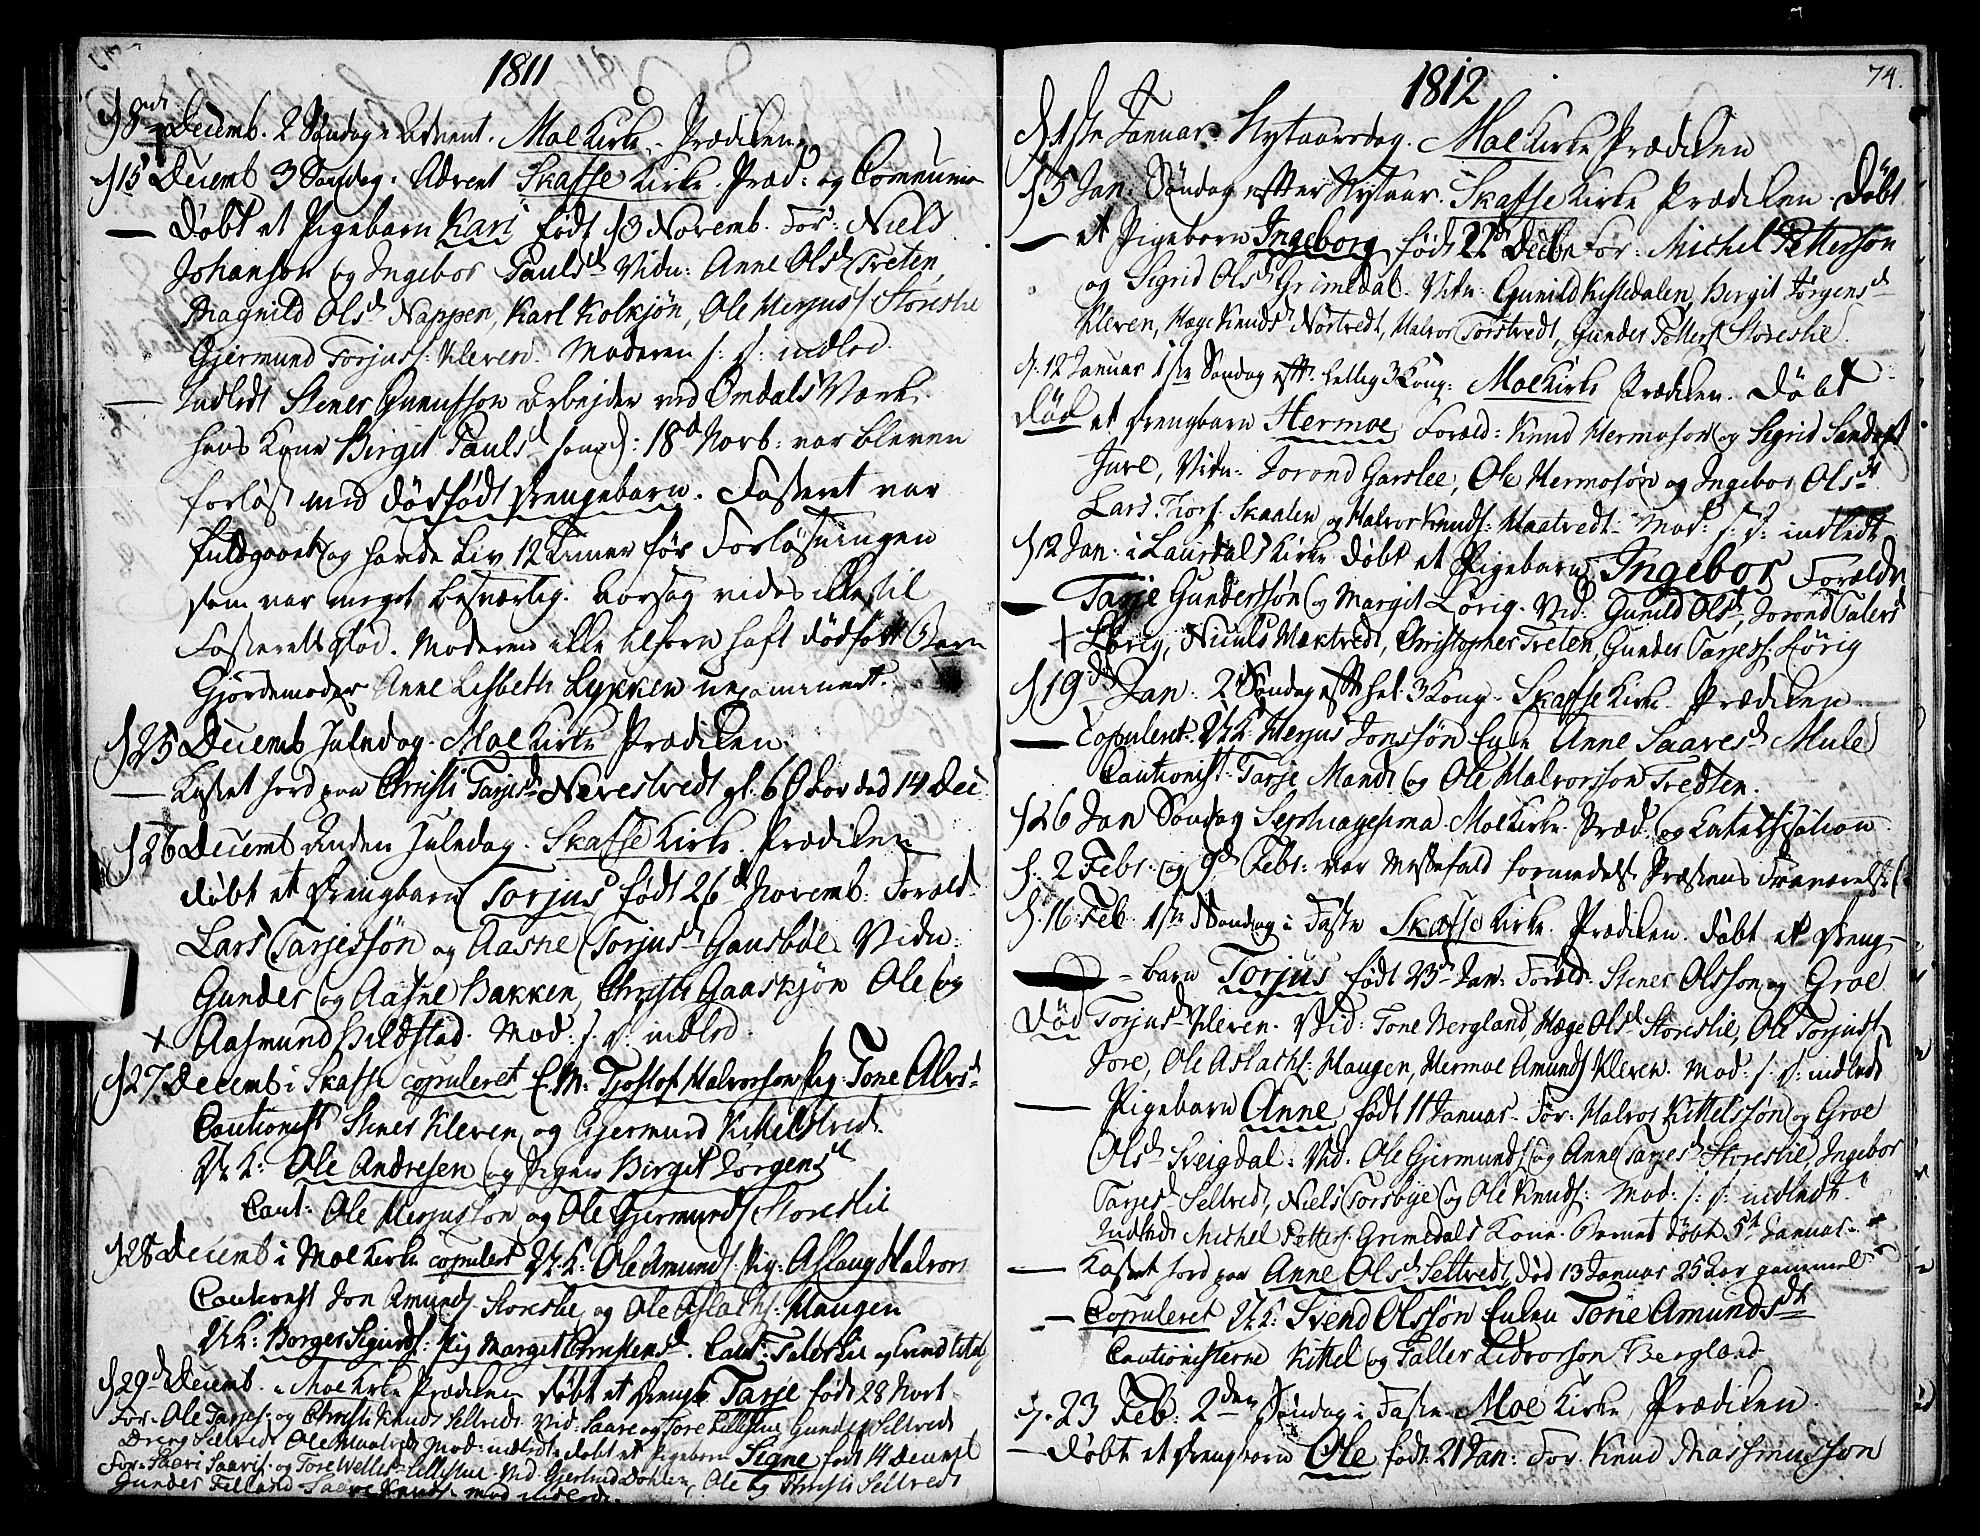 1811
d 8de Decemb. 2 Søndag i Advent. Moe Kirke. Prædiken
d 15 Decemb 3 Søndag i Advent Skafse Kirke. Præd: og Communion
Døbt et Pigebarn Kari født d 3 Novemb. For: Niels
Johanson og Ingebor Paulsd Vidn: Anne Olsd Treten,
Magnild Olsd Nappen, Karl Kolkjøn, Ole Herjuss Storeslie
Gjermund Torjuss: Kleven. Moderen s: d: indled
Indledt Stener Gunufson Arbejder ved Omdals Værk
hans Kone Birgit Paulsd som d: 18d Novb: var bleven
forløst med dødfødt Drengebarn. Fosteret var
fuldgaaet og havde Liv 12 Timer før Forløsningen
som var meget besværlig. Aarsag vides ikke til
Fosterets død. Moderen ikke tilforn haft dødfødt Barn
Gjordemoder Anne Lisbeth Lykken unexamineret.
d 25 Decemb Juledag. Moe Kirke Prædiken.
Kastet Jord paa Christi Tarjesd Nerestvedt gl. 60 Aar død 14 Dec
d 26 Decemb Anden Juledag. Skafse Kirke. Prædiken
døbt et Drengbarn Torjus født 26d Novemb: Foræld
Lars Tarjessøn og Aasne Torjusd Gausbøe Vidn:
Gunder og Aasne Bakken, Christi Gaaskjøn Ole og
+ Aasmund Hildstad. Mod: s: d: indled.
d 27 Decemb i Skafse copuleret E. M: Tjostof Halvorson Pig: Tone Alvsd
Cautionist Stener Kleven og Gjermund Kittelstved.
U: K: Ole Andresen og Pigen Birgit Jørgensd
Caut: Ole Herjusson og Ole Gjermunds Storeslie
d 28 Decemb i Moe Kirke copuleret U: K: Ole Amunds: Pig: Aslaug Halvors
Cautionist Jon Amunds Storeslie og Ole Aslachs: Haugen
U: K: Borger Sigurds: Pig Marget Christensd. Caut:
d 29d Decemb. i Moe Kirke Prædiken døbt et Drengb Tarje født 28 Novb
For: Ole Tarjes: og Christi Knuds Seltvedt Vid: Saare og Tore Lillestue Gunder Seltvedt
Dreng Seltvedt Ole Maatvedt Mod: indledt døbt et Pigebarn Signe født 14 Decemb
For: Saari Saaris: og Tore Lillestue Vid Gjertrud Dahlen, Ole og Christi Seltvedt
Gunder Felland Saare Knuds: Mod indled.
1812
74.
d 1ste Januar. Nytaarsdag. Moe Kirke Prædiken
d 5 Jan: Søndag efter Nytaar. Skafse Kirke Prædiken. Døbt
et Pigebarn Ingeborg født 22d Decbr For: Michel Petterson
og Sigrid Olsd Grimedal. Vidn: Gunild Kisledalen, Birgit Jørgensd
Kleven, Hæge Knudsd Nørtvedt, Halvor Torstvedt, Gunder Petters Storeslie
d. 12 Januar 1ste Søndag eft: hellig 3 Kong: Moe Kirke Prædiken. Døbt
død et Drengbarn Hermoe Foræld: Knud Hermoson og Sigrid Sandersd
Jure, Vidn: Jorond Garslee, Ole Hermosøn og Ingebor Olsd
Lars Tors Skaalen og Halvor Knuds: Maatvedt Mod: s: d: indledt
d 12 Jan: i Laurdals Kirke Døbt et Pigebarn Ingebor Forældr
Tarje Gunderssøn og Margit Lørig. Vid: Gunild Olsd, Jorond Talevs
+ Lørig, Niculs Mæktvedt, Christopher Treten, Gunder Tarjess: Lørig
d 19d Jan: 2 Søndag eft hel: 3 Kong. Skafse Kirke. Prædiken
Copuleret U: K: Herjus Jonssøn Enke Anne Saaresd Mule
Cautionist: Tarje Mandt og Ole Halvorsson Tredten.
d 26 Jan Søndag Septuagesima Moe Kirke. Præd. og Catechisation
d. 2 Febr. og 9d Febr: var Messefald formedelst Præstens Fraværelse
d. 16. Feb. 1ste Søndag i Faste Skafse Kirke. Prædiken. døbt et Dreng-
barn Torjus født 23d Jan: Foræld: Stener Olsson og Groe
Død Torjusd Kleven. Vid: Tone Bergland, Hæge Olsd Storeslie, Ole Torjuss
Jore, Ole Aslachs: Haugen, Hermoe Amunds Kleven. Mod: s: d: indledt
Pigebarn Anne født 11 Januar. For: Halvor Kittelssøn og Groe
Olsd Sveigdal. Vid. Ole Gjermunds og Anne Tarjesd Storeslie, Ingebor
Tarjesd Seltvedt, Niels Torsbye og Ole Knuds: Mod: s: d: indledt.
Indledt Michel Petters: Grimedals Kone. Barnet døbt 5t Januar.
Kastet Jord paa Anne Olsd Seltvedt, død 13 Januar 25 Aar gammel
Copuleret U: K: Svend Olssøn Enken Tone Amundsdt
Cautionisterne Kittel og Taller Lidvorson Bergland
d. 23 Feb. 2den Søndag i Faste Moe Kirke, Prædiken.
Døbt et Drengbarn Ole født 21 Jan: For Knud Rasmusson